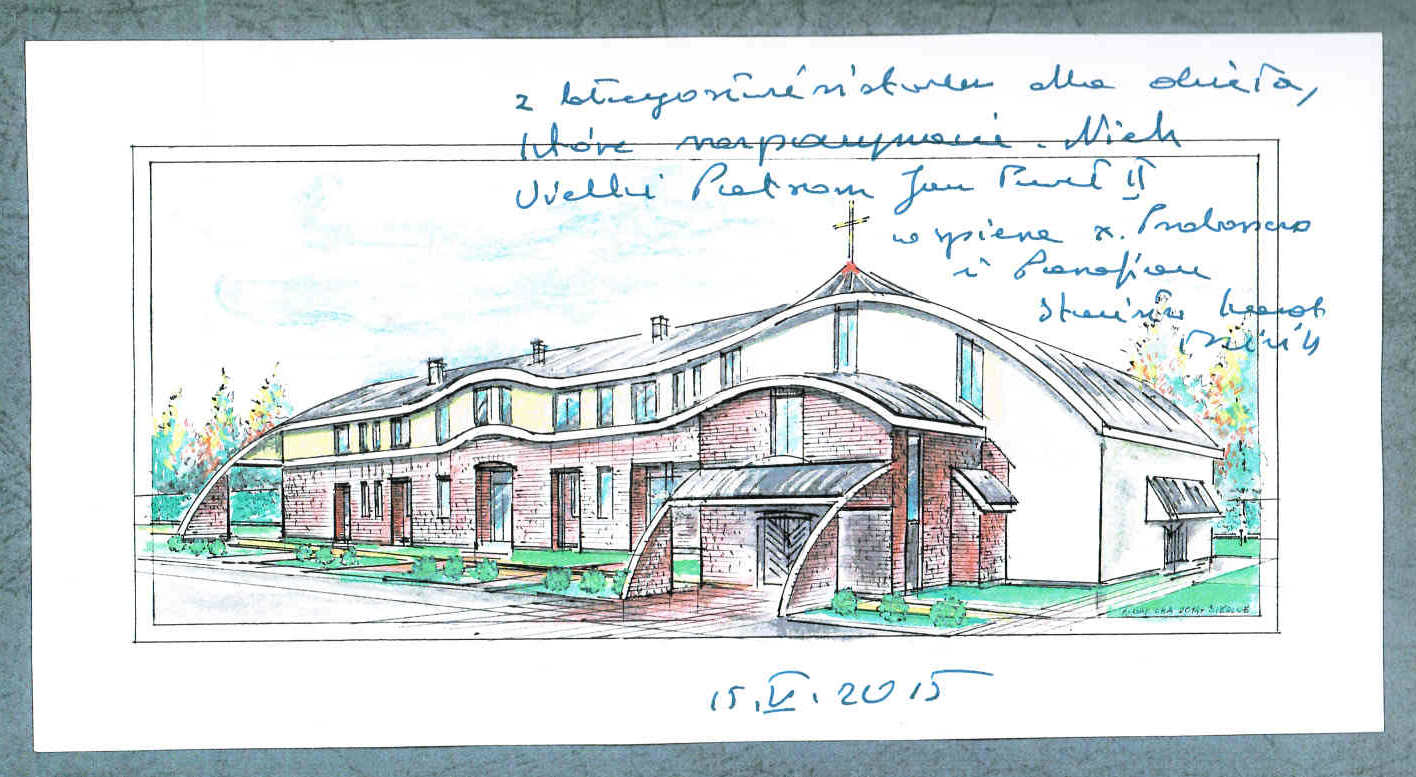 z błogosławieństwem dla dzieła,
które rozpoczynacie. Niech
Wielki Patron Jan Paweł II
wspiera x. Proboszcza
i Parafian
Stanisław kard.
15.V.2015